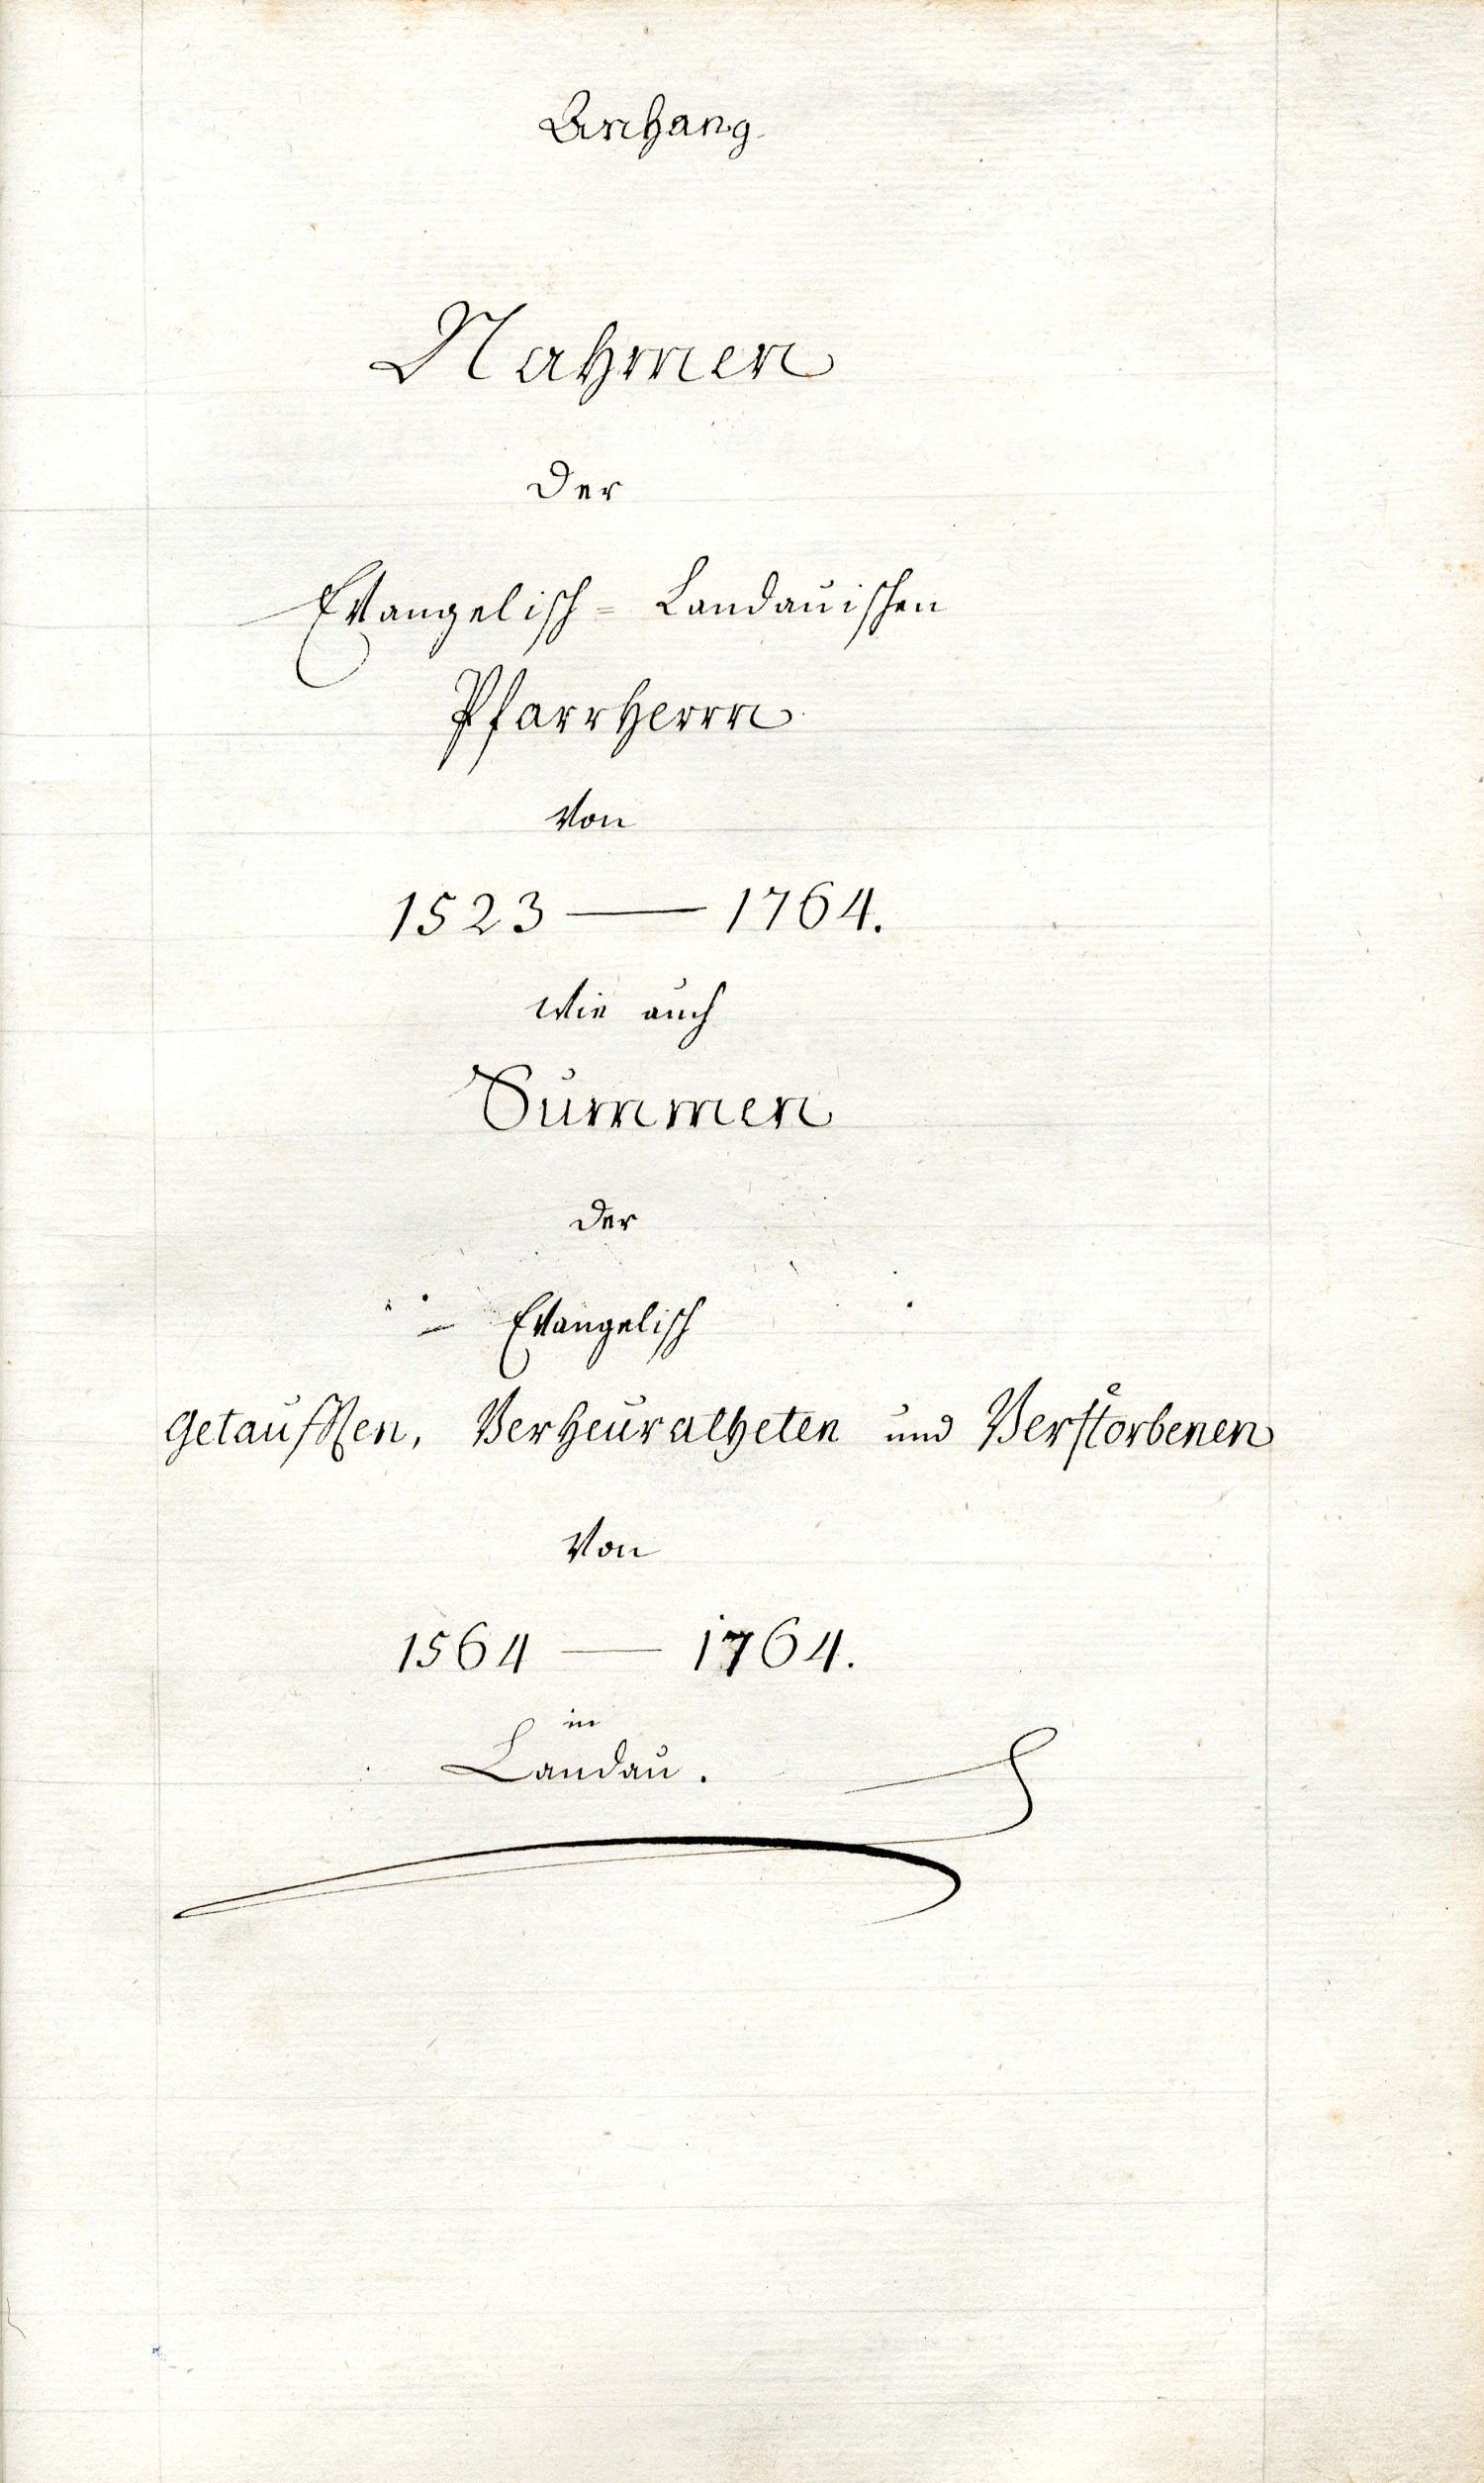 Anhang.
Nahmen
Der
Evangelisch = Landauischen
Pfarrherrn.
Von
1523 — 1764.
wie auch
Summen
der
Evangelisch
getaufften, Verheuratheten und Verstorbenen
Von
1564 — 1764.
in
Landau.